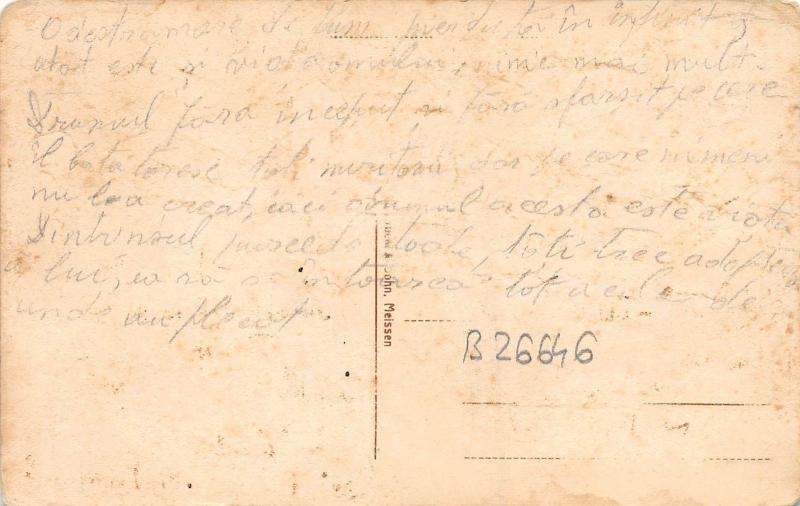 O destramare de fum pierdută în infinit
atât este și viața omului, nimic mai mult.
Drumul fără început și fără sfârșit pe care
îl bătătoresc toți muritorii, dar pe care nimeni
nu l-a creat, căci drumul acesta este viața
Dintrînsul purced toate, toți trec
a lui, ca să se întoarcă tot acolo de
unde au plecat.
& John, Meissen
B 26646